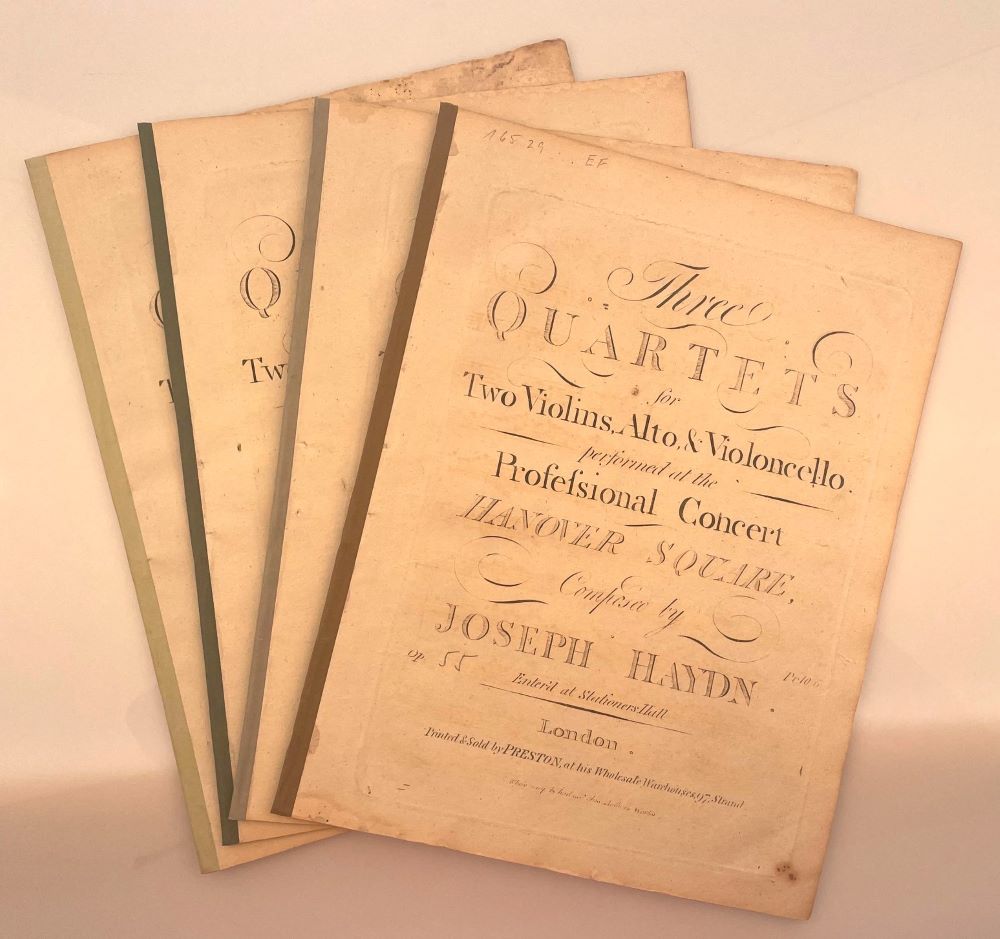 16529 .. EF
Three
QUARTETS
for
Two Violins, Alto, & Violoncello.
performed at the
Profeſsional Concert
HANOVER SQUARE,
Composed by
JOSEPH HAYDN.
Op. 55
Pr. 10 6
Enter'd at Stationers Hall
London.
Printed & Sold by PRESTON, at his Wholesale Warehouses, 97, Strand
Where may be had
Q
Tw
Q
T